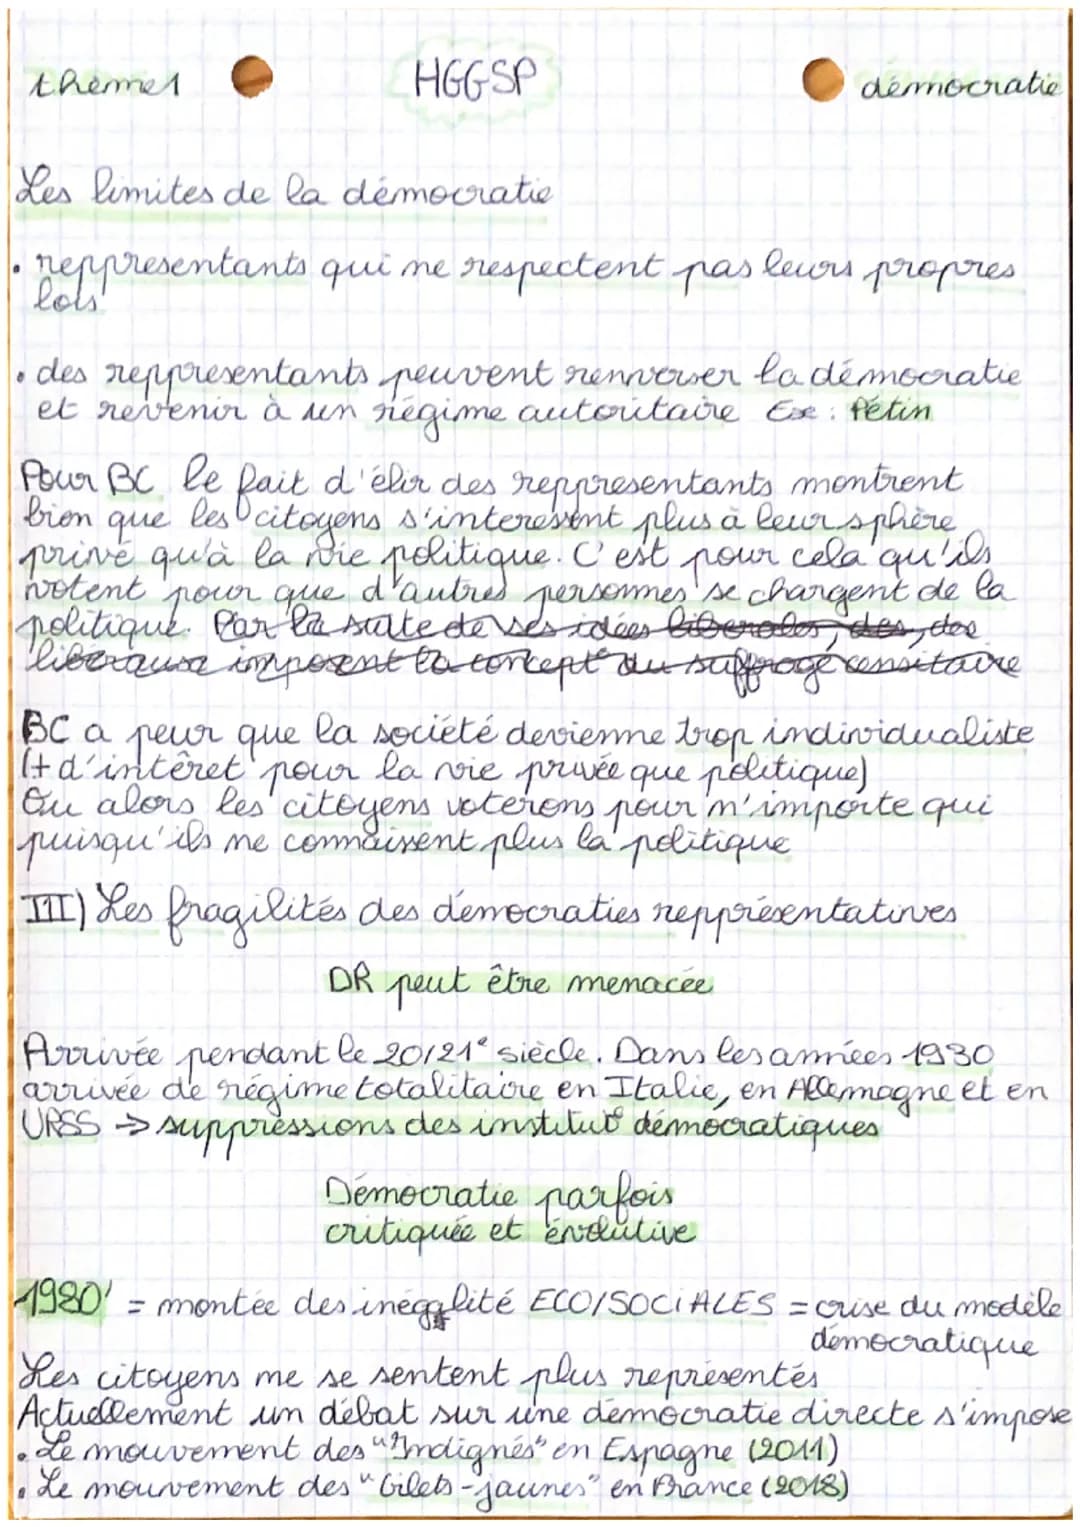 theme1 HGGSP démocratie
Les limites de la démocratie
• reppresentants qui ne respectent pas leurs propres
lois
• des reppresentants peuvent renverser la démocratie
et revenir à un régime autoritaire Ex : Pétin
Pour BC le fait d'élir des reppresentants montrent
bien que les citoyens s'interessent plus à leur sphère
privé qu'à la vie politique. C'est pour cela qu'ils
votent pour que d'autres personnes se chargent de la
politique. Par la suite de ses idées liberales, des, des
liberaux imposent la concept du suffrage censitaire
BC a peur que la société devienne trop individualiste
(+ d'intêret pour la vie privée que politique)
Ou alors les citoyens voterons pour n'importe qui
puisqu'ils ne connaissent plus la politique
III) Les fragilités des démocraties reppresentatives
DR peut être menacée
Arrivée pendant le 20/21e siècle. Dans les années 1930
arrivée de régime totalitaire en Italie, en Allemagne et en
URSS → suppressions des institut° démocratiques
Démocratie parfois
critiquée et évolutive
1980' = montée des inégalité ECO/SOCIALES = crise du modèle
démocratique
Les citoyens ne se sentent plus représentés
Actuellement un débat sur une démocratie directe s'impose
• Le mouvement des "Indignés" en Espagne (2011)
• Le mouvement des "Gilets-jaunes" en France (2018)